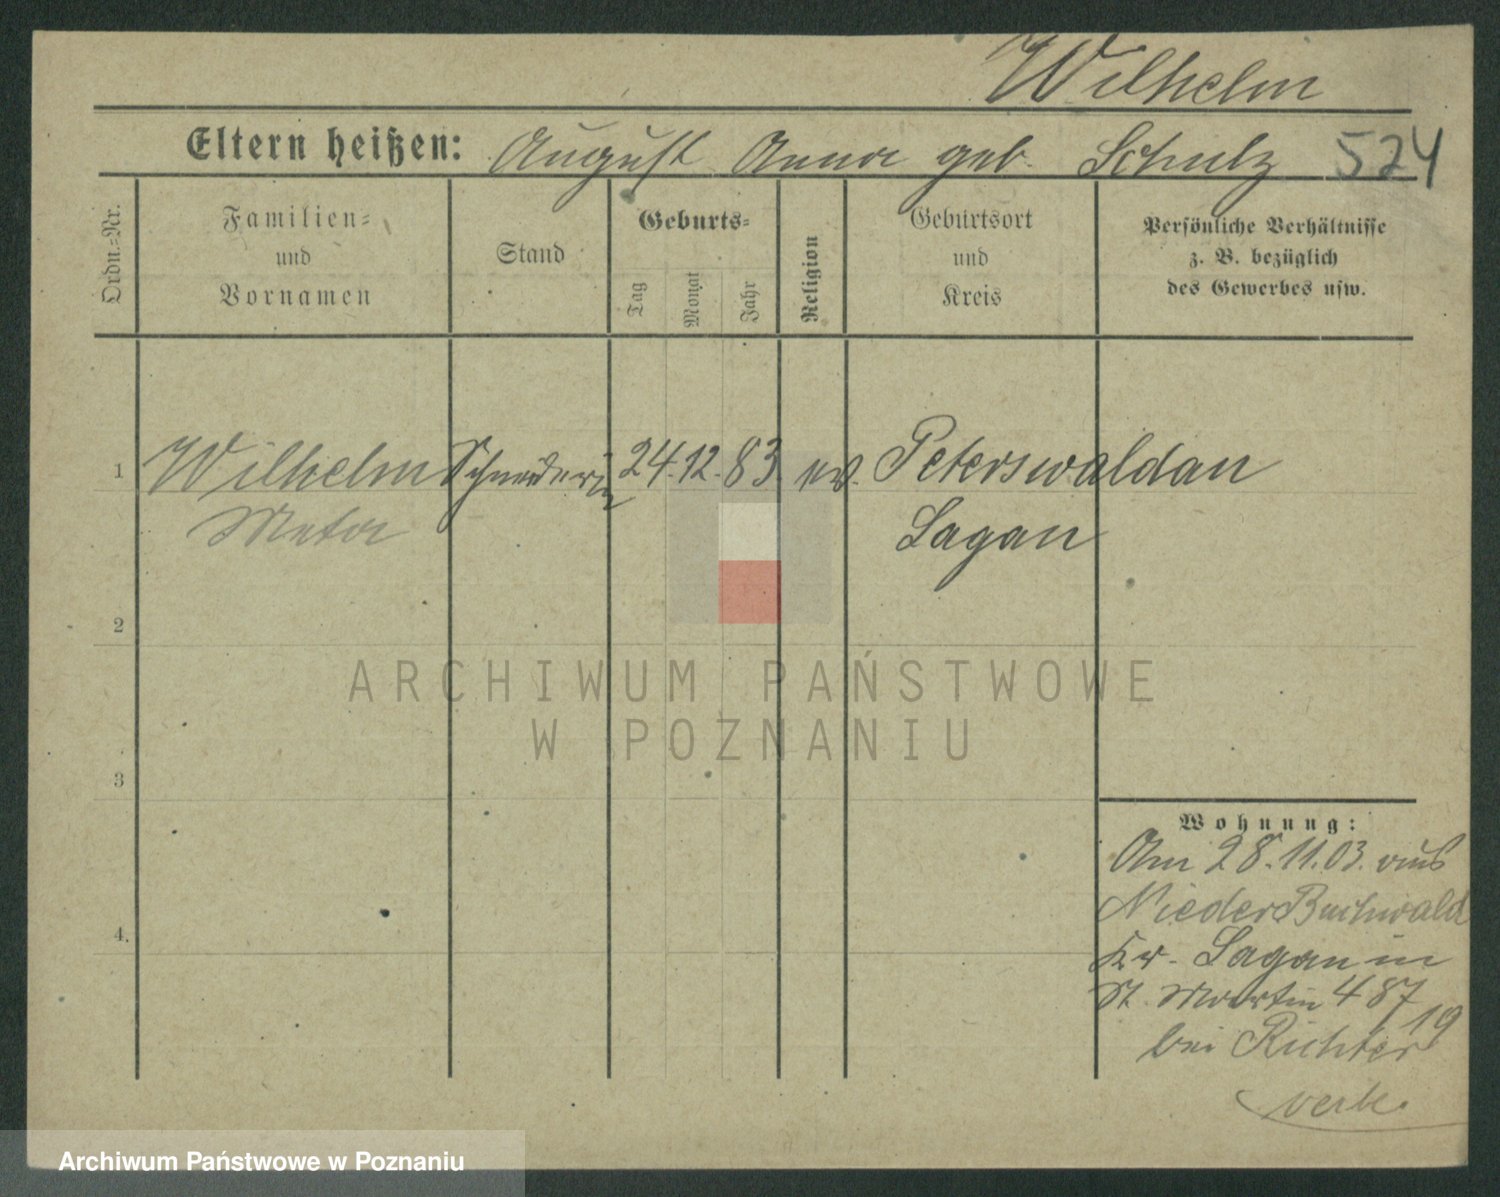 Wilhelm
Eltern heißen: August Anna geb. Schulz 524
Ordn.=Nr.
Familien=
und
Vornamen
Stand
Geburts=
Tag
Monat
Jahr
Religion
Geburtsort
und
Kreis
Persönliche Verhältnisse
z. B. bezüglich
des Gewerbes usw.
1 Wilhelm Schneiderin 24. 12. 83. ev. Peterswaldau
Meta Sagan
2
3
4.
ARCHIWUM PAŃSTWOWE
W POZNANIU
Wohnung:
Am 28. 11. 03. aus
Nieder Buchwald
Kr. Sagan in
St. Martin 487
19
bei Richter
Archiwum Państwowe w Poznaniu